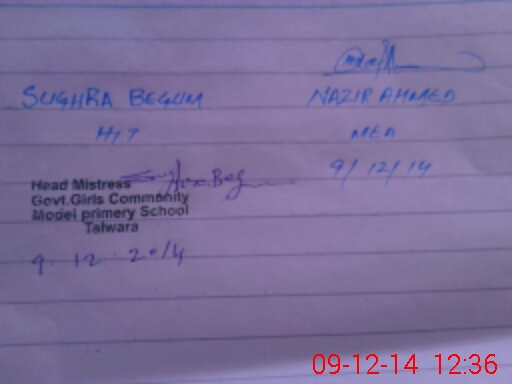 SUGHRA BEGUM
H/T
Head Mistress
Govt.Girls Community
Model primery School
Talwara
9. 12. 2014
NAZIR AHMED
MEA
9/12/14
09-12-14 12:36